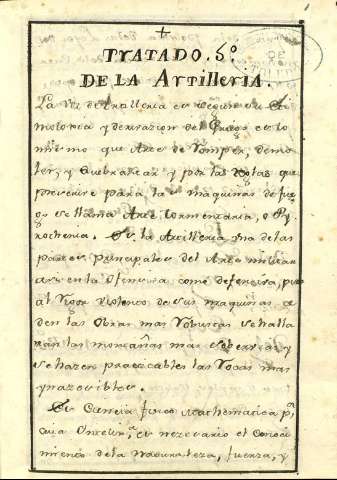 TRATADO. 5º
DE LA ARTILLERIA.
La Voz de Artilleria es segun su Eti
molocia y derivazion del Griego es lo
mismo que Arte de Romper, demo
ler, y Quebrantar y por las Reglas que
prescrive para las maquinas de fue
go se llama Arte tormentaria, o Py
rochenia. Es la Artilleria una de las
partes principales del Arte militar
assi en la ofensiva como defensiva, pues
al Vigor violento de sus maquinas ce
den las Obras mas Robustas se halla
nan las montañas mas sobervias y
se hazen practicables las Rocas mas
ynazesibles.
Es Ciencia fisico Mathematica pª
cuia Intelinª es nezesario el Conoci
miento de la naturaleza, fuerza, y